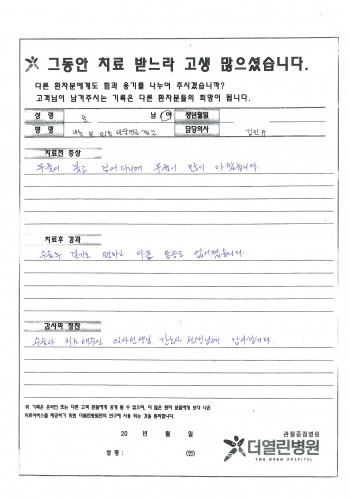 그동안 치료 받느라 고생 많으셨습니다.
다른 환자분에게도 힘과 용기를 나누어 주시겠습니까?
고객님이 남겨주시는 기록은 다른 환자분들의 희망이 됩니다.
성 명 문 남 여 생년월일
병 명 담당의사 김민규
치료전 증상
무릎이 붓고 걸어다니며 무릎이 많이 아팠습니다.
치료후 경과
수술후 걷기도 편하고 아픈 통증도 없어졌습니다.
감사와 칭찬
수술과 치료해주신 의사선생님 간호사 선생님께 감사합니다.
위 기록은 온라인 또는 다른 고객 분들에게 공개 될 수 있으며, 더 많은 환자 분들에게 보다 나은
의료서비스를 제공하기 위한 더열린병원만의 연구에 사용 되는 것을 동의합니다.
20 년 월 일
성명 : (인)
관절중점병원
더열린병원
THE OPEN HOSPITAL